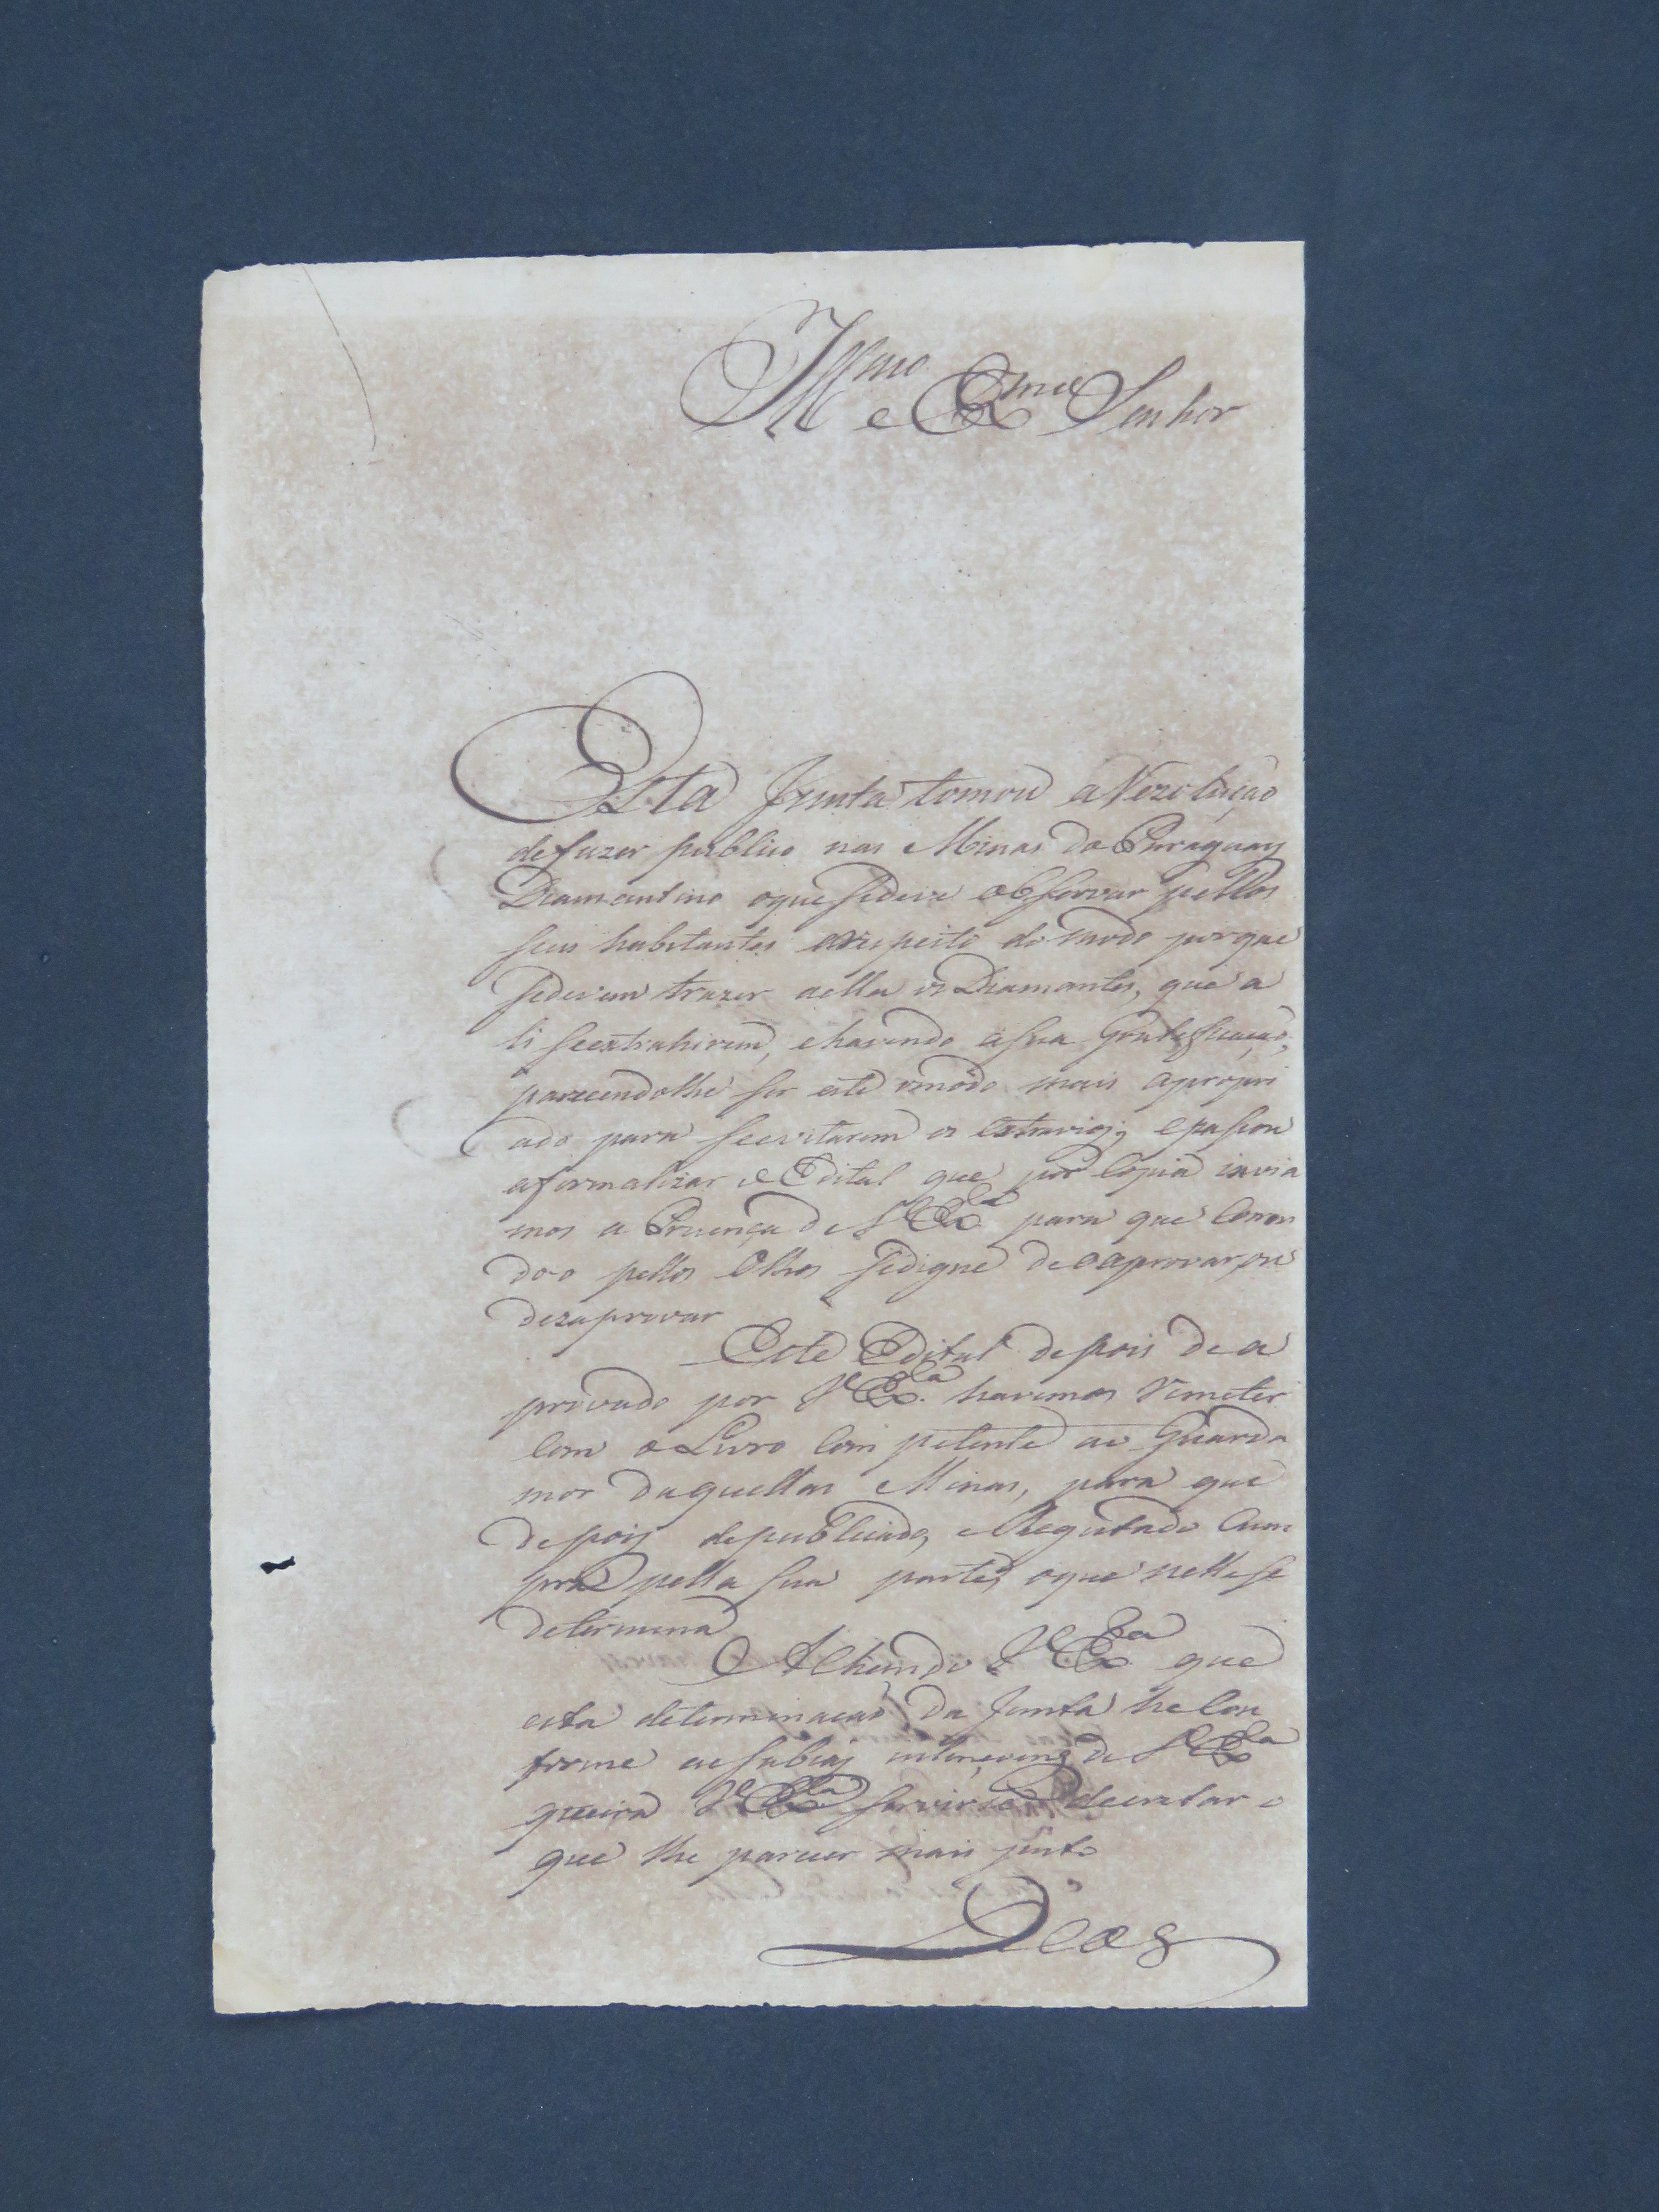 Illmo e Exmo Senhor
Esta Junta tomou a Rezolução
de fazer publico nas Minas do Paraguay
Diamantino oque sedeve observar pellos
seus habitantes arespeito do modo porque
sedevem trazer aella os Diamantes, que a
li seextrahirem, ehavendo asua Gratificação,
parecendolhe ser este omódo mais apropri
ado para seevitarem os extravios; epasou
aformalizar o Edital que por Copia invia
mos a Prezença de V Exa para que Corren
doo pellos Olhos sedigne de oaprovar, ou
dezaprovar
Este Edital depois de a
provado por V Exa. havemos Remeter
Com o Livro Competente ao Guarda
mor daquellas Minas, para que
depois depublicado, eRegistado Cum
pra pella sua parte, oque nellese
determina
Achando V Exa que
esta determinação da Junta he Con
forme as sabias intençoens de V Exa
queira V Exa servirse decretar o
que lhe parecer mais justo
Deos